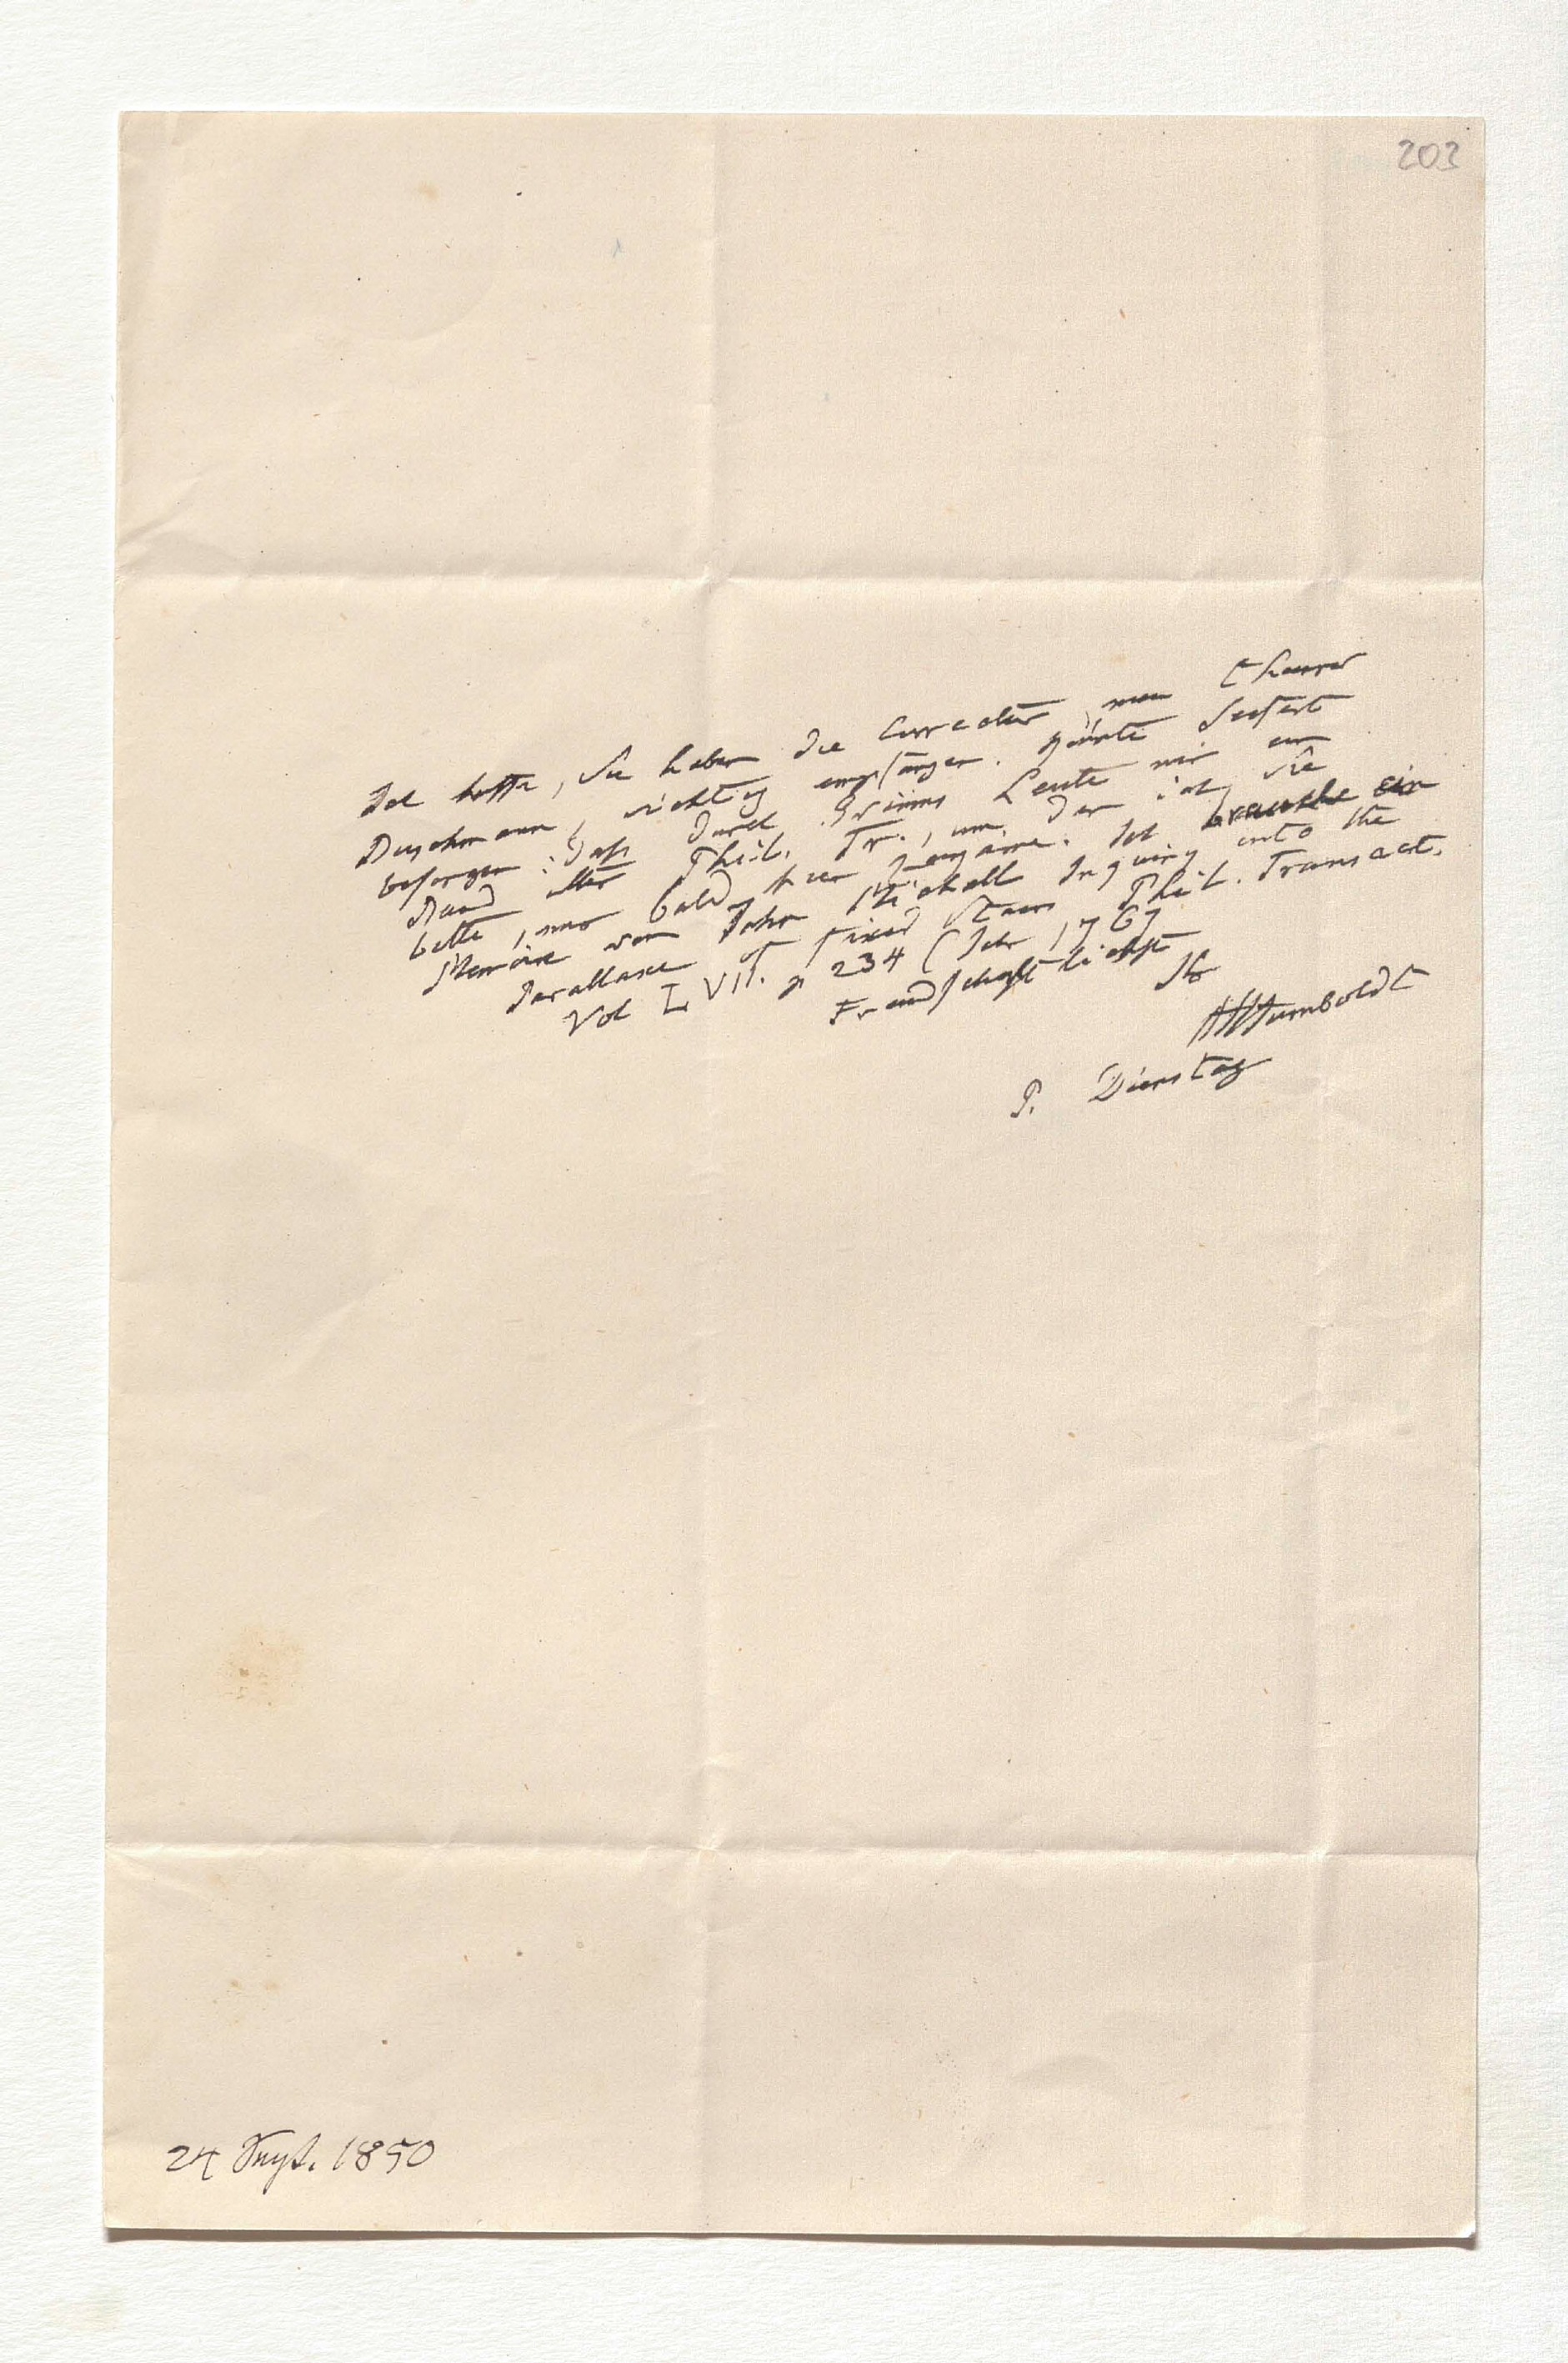 203
Ich hoffe, Sie haben die Correctur, mein theurer
Buschmann, richtig empfangen. Seifert
besorgen: daß durch Grimms Leute mir ein
Band alter Phil. Tr., um den ich Sie
bitte, mir bald hier zugäme. Ich brauche ein
Memoire vom John Michell Inquiry into the
Parallaxe of fixed Stars Phil. Transact.
Vol LVII. p 234 (Jahr 1767
Freundschaftlichst
Ihr
AvHumboldt
P. Dienstag
24 Sept. 1850